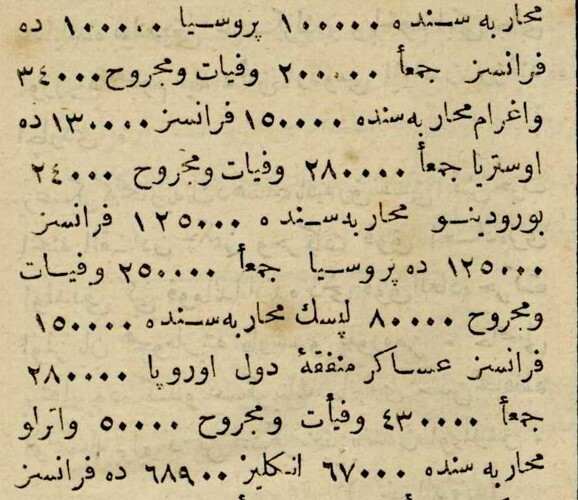 محاربه سنده ١٠٠٠٠٠ پروسيا ١٠٠٠٠٠ ده
فرانسز جمعاً ٢٠٠٠٠٠ وفيات ومجروح ٣٤٠٠٠
واغرام محاربه سنده ١٥٠٠٠٠ فرانسز ١٣٠٠٠٠ ده
اوستريا جمعاً ٢٨٠٠٠٠ وفيات ومجروح ٢٤٠٠٠
بورودينو محاربه سنده ١٢٥٠٠٠ فرانسز
١٢٥٠٠٠ ده پروسيا جمعاً ٢٥٠٠٠٠ وفيات
ومجروح ٨٠٠٠٠ لپسك محاربه سنده ١٥٠٠٠٠
فرانسز عساكر متفقهٔ دول اوروپا ٢٨٠٠٠٠
جمعاً ٤٣٠٠٠٠ وفيأت ومجروح ٥٠٠٠٠ واترلو
محاربه سنده ٦٧٠٠٠ انكليز ٦٨٩٠٠ ده فرانسز